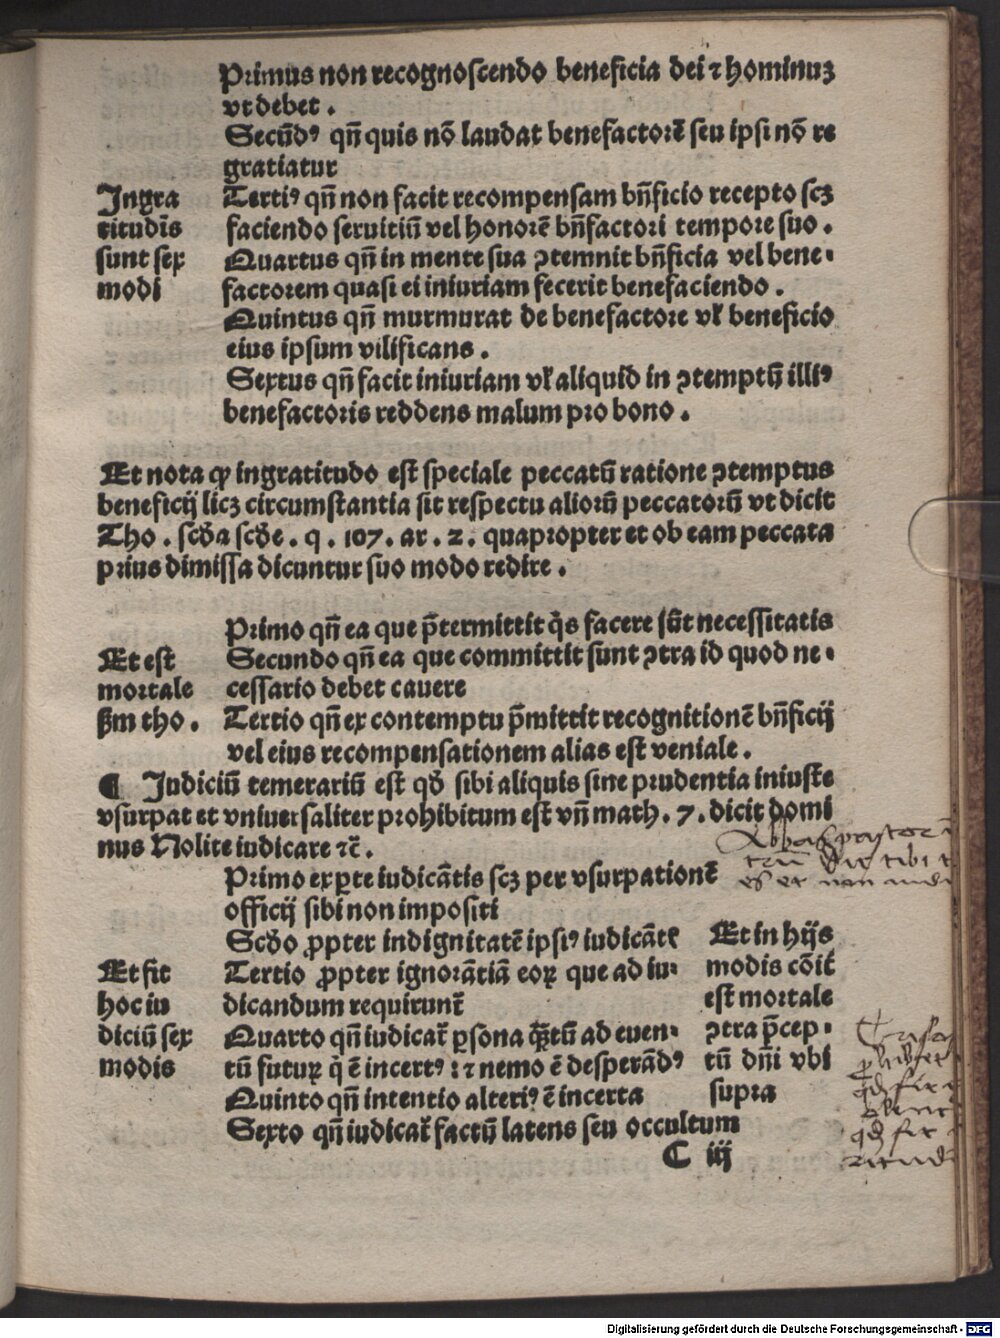 Primus non recognoscendo beneficia dei ⁊ hominuꝫ
vt debet .
Secūdꝰ qñ quis nō laudat benefactorē seu ipsi nō re
gratiatur
Ingra
titudīs
sunt sex
modi
Tertiꝰ qñ non facit recompensam bñficio recepto scꝫ
faciendo seruitiū vel honorē bñfactori tempore suo .
Quartus qñ in mente sua ꝯtemnit bñficia vel bene⸗
factorem quasi ei iniuriam fecerit benefaciendo .
Quintus qñ murmurat de benefactore vł beneficio
eius ipsum vilificans .
Sextus qñ facit iniuriam vł aliquid in ꝯtemptū illiꝰ
benefactoris reddens malum pro bono .
Et nota ꝙ ingratitudo est speciale peccatū ratione ꝯtemptus
beneficij licꝫ circumstantia sit respectu aliorū peccatorū vt dicit
Tho . scđa scđe . q . 107 . ar . 2 . quapropter et ob eam peccata
prius dimissa dicuntur suo modo redire .
Et est
mortale
ẜm tho .
Primo qñ ea que p̄termittit q̇s facere sūt necessitatis
Secundo qñ ea que committit sunt ꝯtra id quod ne⸗
cessario debet cauere
Tertio qñ ex contemptu p̄mittit recognitionē bñficij
vel eius recompensationem alias est veniale .
¶ Iudiciū temerariū est qđ sibi aliquis sine prudentia iniuste
vsurpat et vniuersaliter prohibitum est vñ math . 7 . dicit domi
nus Nolite iudicare ⁊c̄ .
Et fit
hoc iu
diciū sex
modis
Primo ex ꝑte iudicātis scꝫ per vsurpationē
officij sibi non impositi
Scđo ꝓpter indignitatē ipsiꝰ iudicātꝭ
Tertio ꝓpter ignorātiā eoꝝ que ad iu⸗
dicandum requirunt᷑
Quarto qñ iudicat᷑ ꝑsona q̄ꝫtū ad euen⸗
tū futuꝝ q̇ ē incertꝰ : ⁊ nemo ē desperādꝰ
Quinto qñ intentio alteriꝰ ē incerta
Sexto qñ iudicat᷑ factū latens seu occultum
Et in hijs
modis cōit᷑
est mortale
ꝯtra p̄cep⸗
tū dñi vbi
supra
C iij
Digitalisierung gefördert durch die Deutsche Forschungsgemeinschaft - DFG